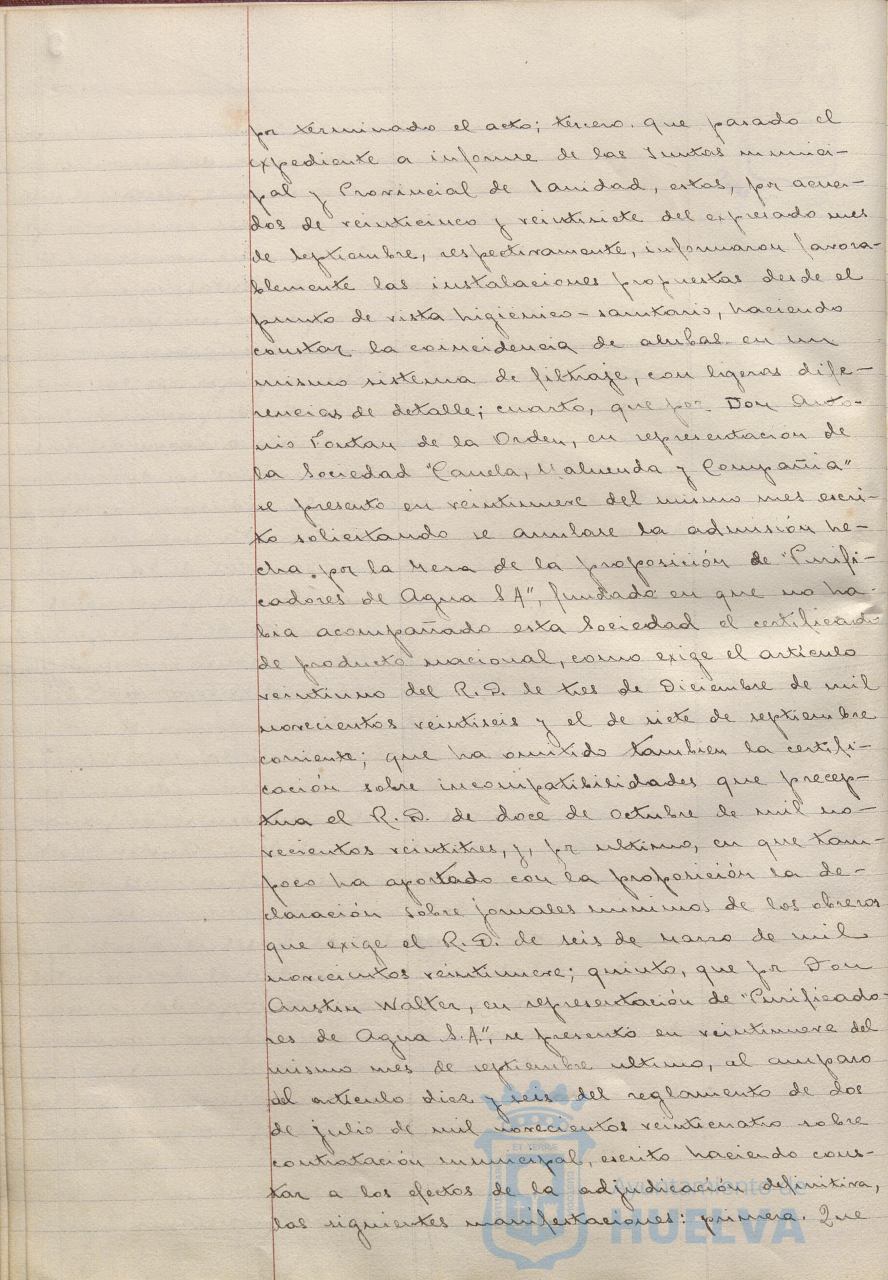 por terminado el acto; tercero. que pasado el
expediente a informe de las Juntas munici-
pal y Provincial de Sanidad, estas, por acuer-
dos de veinticinco y veintisiete del expresado mes
de septiembre, respectivamente, informaron favora-
blemente las instalaciones propuestas desde el
punto de vista higiénico-sanitario, haciendo
constar la coincidencia de ambas en un
mismo sistema de filtraje, con ligeras dife-
rencias de detalle; cuarto, que por Don Anto-
nio Fontan de la Orden, en representacion de
la Sociedad "Canela, Maluenda y Compañia"
se presento en veintinueve del mismo mes escri-
to solicitando se anulase la admisión he-
cha por la Mesa de la proposición de "Purifi-
cadores de Agua S A", fundado en que no ha-
bia acompañado esta Sociedad el certificado
de producto nacional, como exige el artículo
veintiuno del R. D. de tres de Diciembre de mil
novecientos veintiseis y el de siete de septiembre
corriente; que ha omitido tambien la certifi-
cación sobre incompatibilidades que precep-
tua el R. D. de doce de Octubre de mil no-
vecientos veintitres, y, por ultimo, en que tam-
poco ha aportado con la proposición la de-
claración sobre jornales minimos de los obreros
que exige el R. D. de seis de Marzo de mil
novecientos veintinueve; quinto, que por Don
Austin Walter, en representación de "Purificado-
res de Agua S. A.", se presentó en veintinueve del
mismo mes de septiembre ultimo, al amparo
del artículo diez y seis del reglamento de dos
de julio de mil novecientos veinticuatro sobre
contratación municipal, escrito haciendo cons-
tar a los efectos de la adjudicación definitiva,
las siguientes manifestaciones: primera. Que
Ayuntamiento de
HUELVA